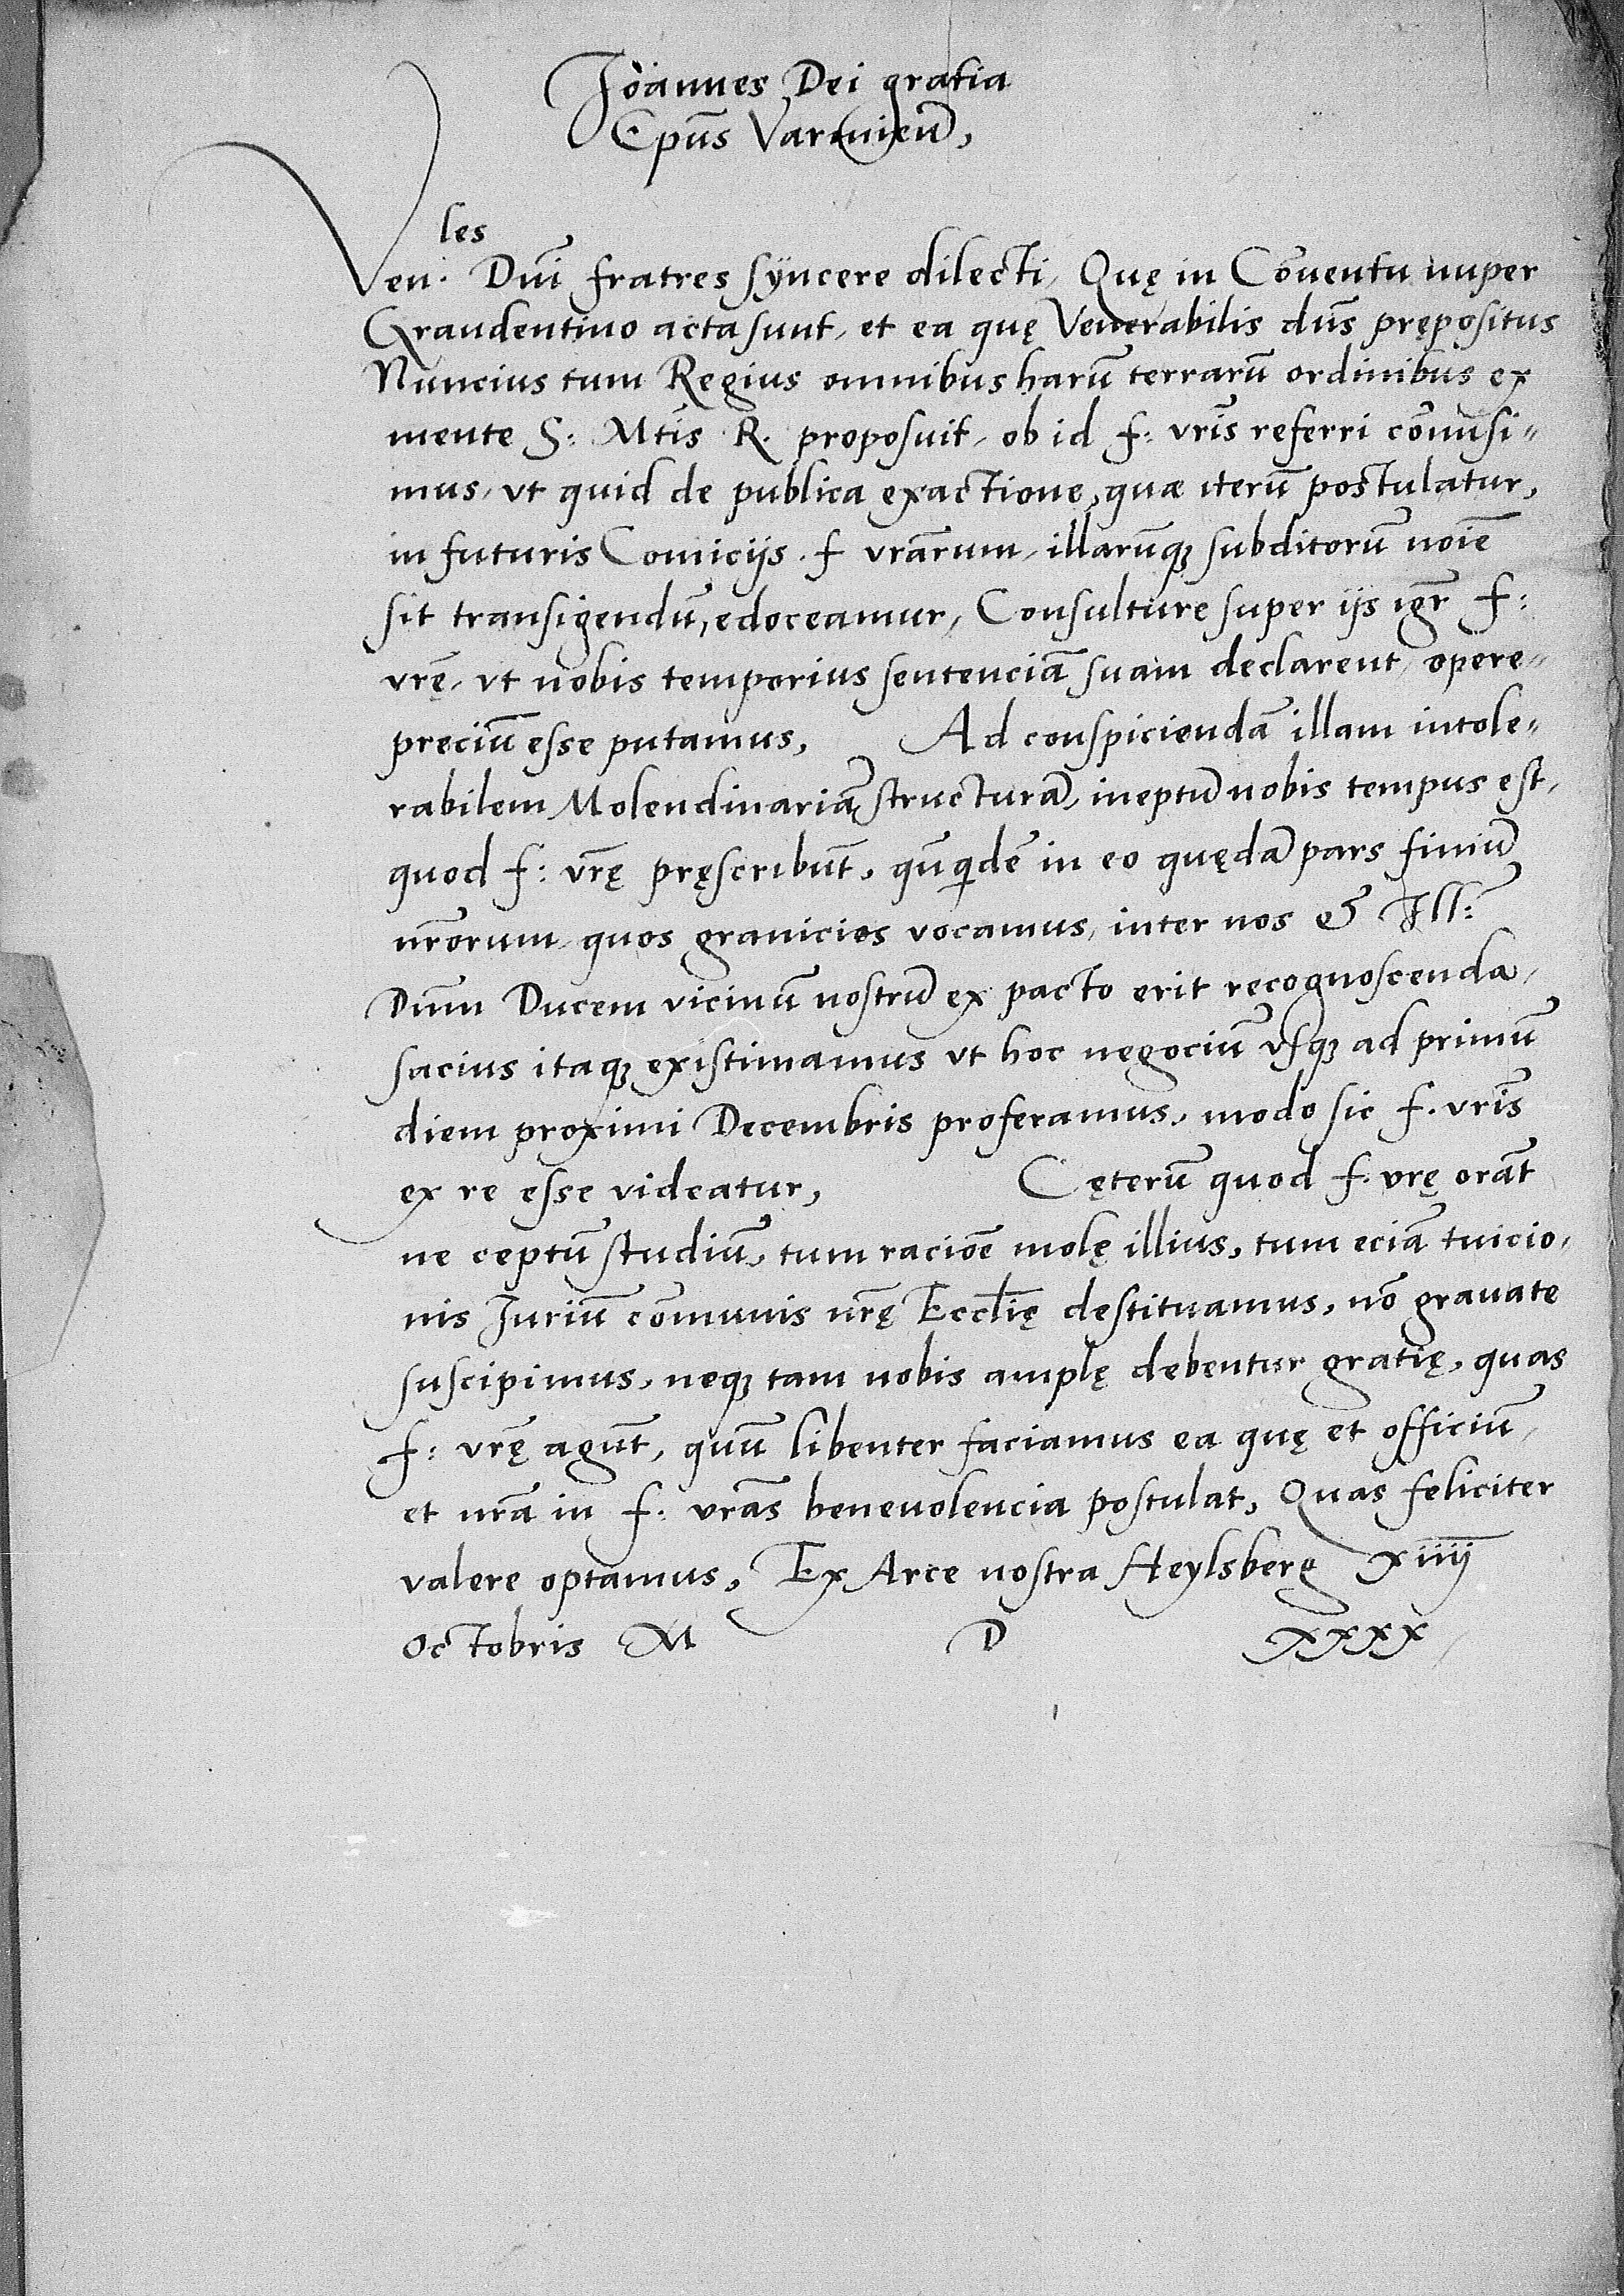 Ioannes Dei gratia
Epūs Varmieñ,
les
Ven. Dnī fratres syncere dilecti, Quę in Cōuentu nuper
Graudentino acta sunt, et ea quę Venerabilis dn̄s prępositus
Nuncius tum Regius omnibus harū terrarū ordinibus ex
mente S: Mtīs R. proposuit, ob id f: vr̄is referri cōmisi-
mus, vt quid de publica exactione, quæ iterū postulatur,
in futuris Comicijs f vrārum, illarūq; subditorū noīe
sit transigendū, edoceamur, Consulture super ijs igr̄ f:
vrę̄, vt nobis temporius sentenciā suam declarent, opere-
preciū esse putamus, Ad conspiciendā illam intole-
rabilem Molendinariā structurā, ineptū nobis tempus est,
quod f: vrę̄ pręscribūt, qn̄qidē in eo quędā pars finiū
nr̄orum, quos granicies vocamus, inter nos & Ill:
Dūm Ducem vicinū nostrū ex pacto erit recognoscenda,
sacius itaq; existimamus vt hoc negociū vsq; ad primū
diem proximi Decembris proferamus, modo sic f. vr̄is
ex re esse videatur, Cęterū quod f. vrę orāt
ne ceptū studiū, tum racioē molę illius, tum eciā tuicio-
nis Iuriū cōmunis nrę̄ Eccłię destituamus, nō grauate
suscipimus, neq; tam nobis amplę debentur gratię, quas
f: vrę̄ agūt, quū libenter faciamus ea quę et officiū,
et nrā in f: vrās beneuolencia postulat, Quas feliciter
valere optamus, Ex Arce nostra Heylsberg xiiij
Octobris M D XXXX,